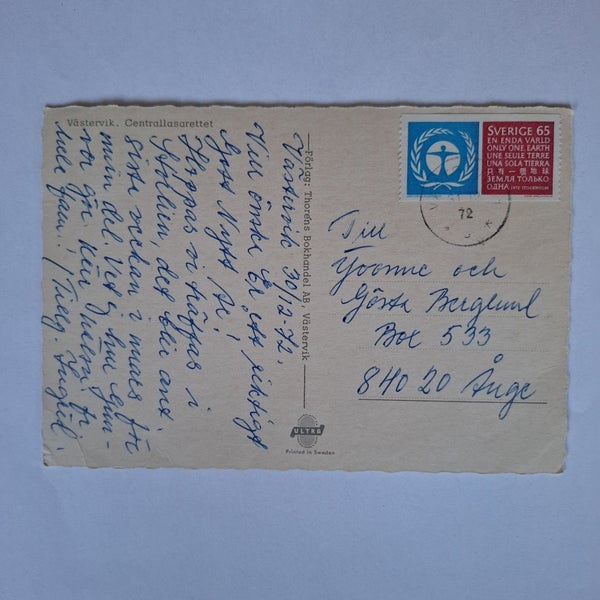 Västervik. Centrallasarettet
Västervik 30/12-72.
Vill önska Er ett riktigt
Gott Nytt År!
Hoppas vi träffas i
det blir and.
sista veckan i mars för
min del. Vet ej hur Gun-
vor gör.
/ Tillg. Ingrid.
—Förlag: Thoréns Bokhandel AB, Västervik—
SVERIGE 65
EN ENDA VÄRLD
ONLY ONE EARTH
UNE SEULE TERRE
UNA SOLA TIERRA
只有一個地球
ЗЕМЛЯ ТОЛЬКО
ОДНА 1972 STOCKHOLM
72
Till
Yvonne och
Gösta Berglund
Box 533
840 20 Ånge
ULTRA
Printed in Sweden